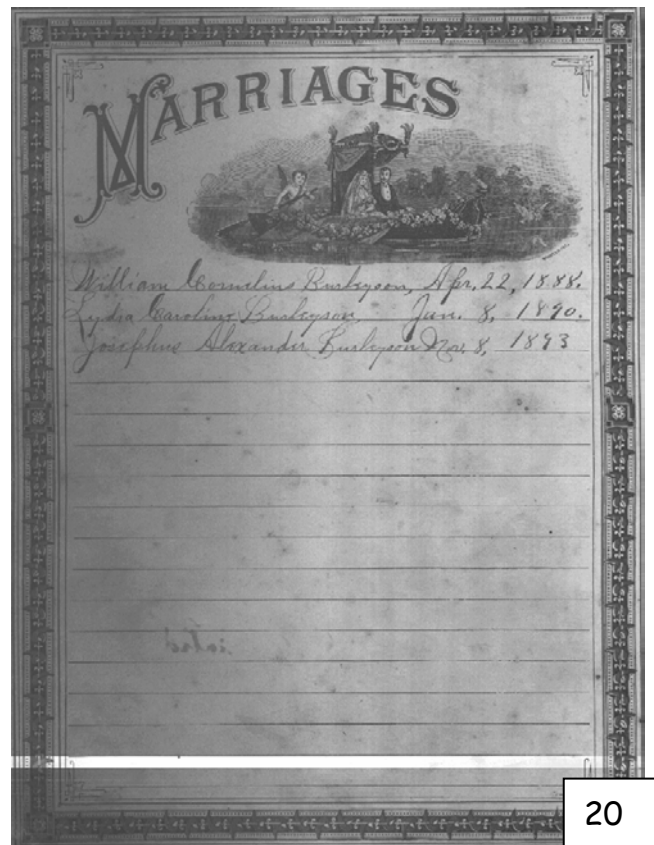 MARRIAGES
William Cornelius Burleyson, Apr. 22, 1888.
Lydia Caroline Burleyson Jan. 8, 1890.
Josephus Alexander Burleyson Nov. 8, 1893
20